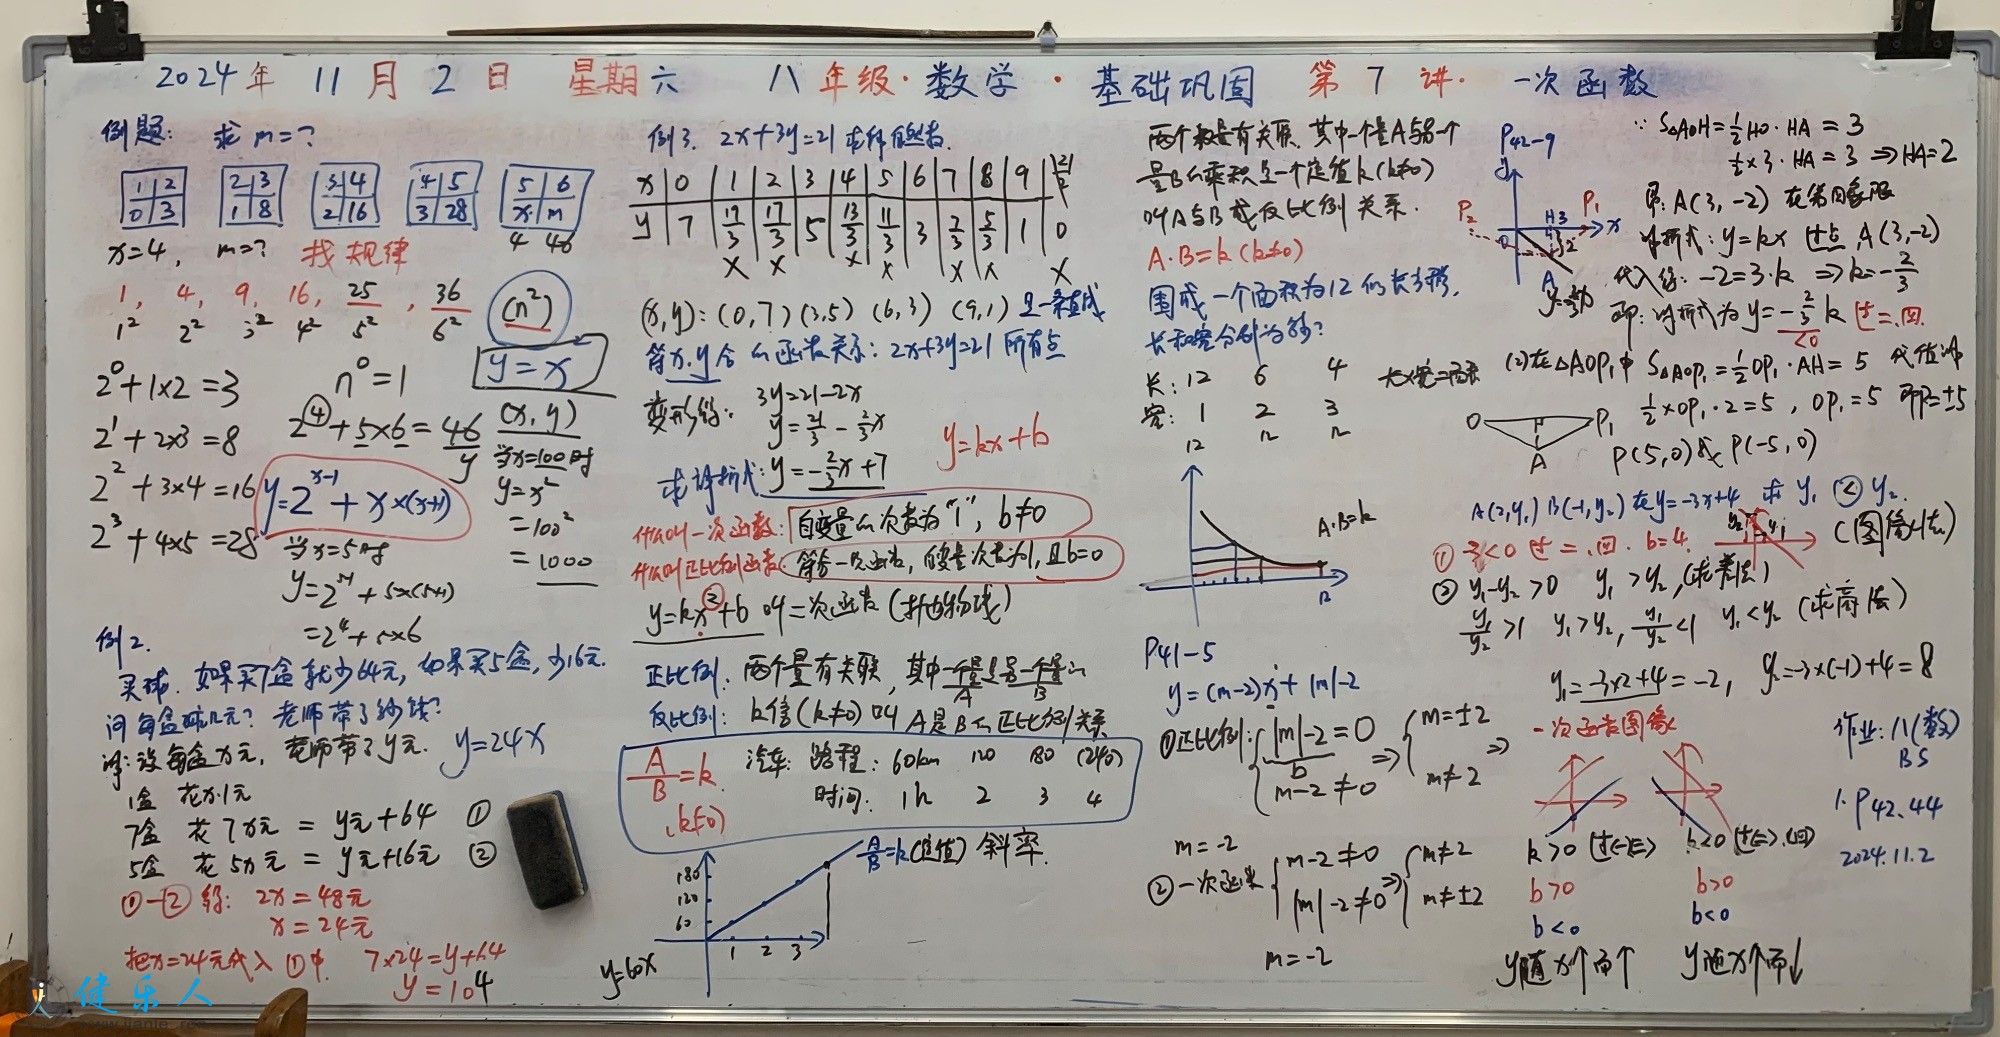 2024年 11月 2日 星期六 八年级·数学·基础巩固 第7讲· 一次函数
例题: 求m=?
1 2
0 3
2 3
1 8
3 4
2 16
4 5
3 28
5 6
x m
4 46
x=4, m=? 找规律
1, 4, 9, 16, 25, 36 (n²)
1² 2² 3² 4² 5² 6²
y=x²
2⁰+1×2=3 n⁰=1
2¹+2×3=8 2④+5×6=46
y
2²+3×4=16
2³+4×5=28
y=2ˣ⁻¹+x×(x+1)
(x,y)
当x=100时
y=x²
=100²
=1000
当x=5时
y=2⁵⁻¹+5×(5+1)
=2⁴+5×6
例2.
买球. 如果买7盒就少64元, 如果买5盒,少16元.
问每盒球几元? 老师带了多少钱?
解:设每盒x元, 老师带了y元. y=24x
1盒 花x·1元
7盒 花7x元=y元+64 ①
5盒 花5x元=y元+16元 ②
①-② 得: 2x=48元
x=24元
把x=24元代入①中. 7×24=y+64
y=104
例3. 2x+3y=21求所有自然数.
x 0 1 2 3 4 5 6 7 8 9 21/2
y 7 19/3 17/3 5 13/3 11/3 3 7/3 5/3 1 0
× × × × × × ×
(x,y): (0,7) (3,5) (6,3) (9,1) 是一条直线
符x.y合的函数关系: 2x+3y=21 所有点
变形得: 3y=21-2x
y=21/3-2/3x
y=kx+b
求解析式: y=-2/3x+7
什么叫一次函数: 自变量的次数为"1", b≠0
什么叫正比例函数: 符合一次函数, 自变量次数为1, 且b=0
y=kx②+b 叫二次函数(抛物线)
正比例: 两个量有关联, 其中一个量是另一个量的
A B
反比例: k倍(k≠0)叫A是B的正比例关系
A/B=k (k≠0)
汽车: 路程: 60km 120 180 (240)
时间: 1h 2 3 4
A/B=k(定值) 斜率.
180
120
60
1 2 3
y=60x
两个数量有关联. 其中一个量A与另一个
量B的乘积是一个定值k(k≠0)
叫A与B成反比例关系.
A·B=k(k≠0)
围成一个面积为12的长方形,
长和宽分别为多少?
长: 12 6 4 长×宽=面积
宽: 1 2 3
12 12 12
A·B=k
12
P41-5
y=(m-2)x+|m|-2
①正比例: |m|-2=0 ⇒ m=±2 ⇒
b
m-2≠0 m≠2
m=-2
②一次函数 m-2≠0 ⇒ m≠2
|m|-2≠0 m≠±2
m=-2
P42-9
y
H 3 P₁ x
P₂ O 2
A
∵ S△AOH=1/2HO·HA=3
1/2×3·HA=3 ⇒HA=2
即: A(3,-2) 在第四象限
解析式: y=kx 过点A(3,-2)
代入得: -2=3·k ⇒k=-2/3
即: 解析式为y=-2/3k 过二.四.
<0
(2)在△AOP₁中 S△AOP₁=1/2OP₁·AH=5 代值得
1/2×OP₁·2=5, OP₁=5 即P=±5
O P₁
A
P(5,0)或P(-5,0)
A(2,y₁) B(-1,y₂)在y=-3x+4 求y₁ ② y₂.
①-3<0 过二.四. b=4. y₂ y₁ (图像法)
② y₁-y₂>0 y₁>y₂, (求差法)
y₁/y₂>1 y₁>y₂, y₁/y₂<1 y₁<y₂ (求商法)
y₁=-3×2+4=-2, y₂=-3×(-1)+4=8
一次函数图像
k>0 过(一)(三) k<0 过(二).(四)
b>0 b>0
b<0 b<0
y随x↑而↑ y随x↑而↓
作业: 八(数)
BS
1. P42.44
2024.11.2
健乐人